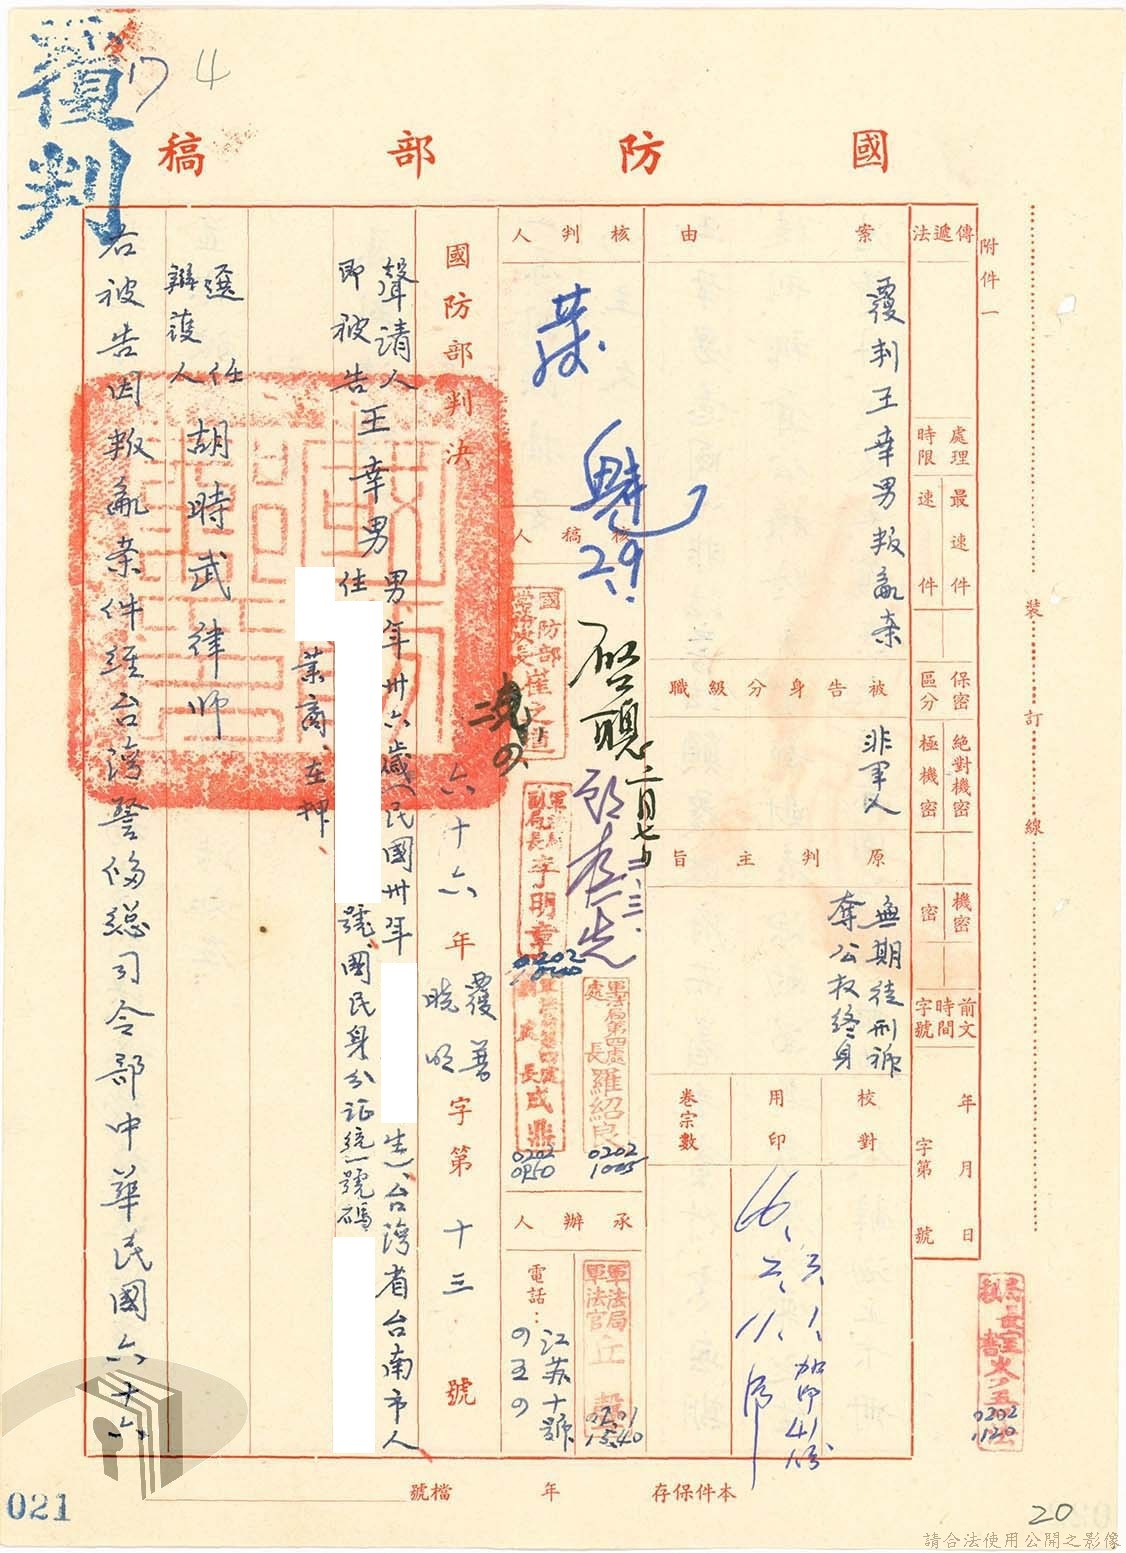 覆判
17
4
國防部稿
附件一
裝訂線
傳遞法
處理時限
最速件
速件
保密區分
絕對機密
極機密
機密
密
前文時間字號
年月日
字第號
案由
覆判王幸男叛亂案
被告身分級職
非軍人
原判主旨
無期徒刑褫
奪公权終身
校對
用印
卷宗數
66、2、11、
六、1、加印41份
核判人
29.
核稿人
啓聰二月七
國防部常務次長崔之道
軍法局副局長李明章
軍法局第四處處長羅紹良
0202
1005
0202
0950
承辦人
軍法局軍法官
0201
1540
電話：
江苏十號
0五0
0202
1120
國防部判決
六十六年覆普曉明字第十三號
聲請人
即被告
王幸男
男年卅六歲(民國卅年
生)、台灣省台南市人
住
號、國民身分証統一號碼
業商、在押、
選任
辯護人
胡時武律師
右被告因叛亂案件經台灣警備總司令部中華民國六十六
本件保存
年
檔號
021
20
請合法使用公開之影像